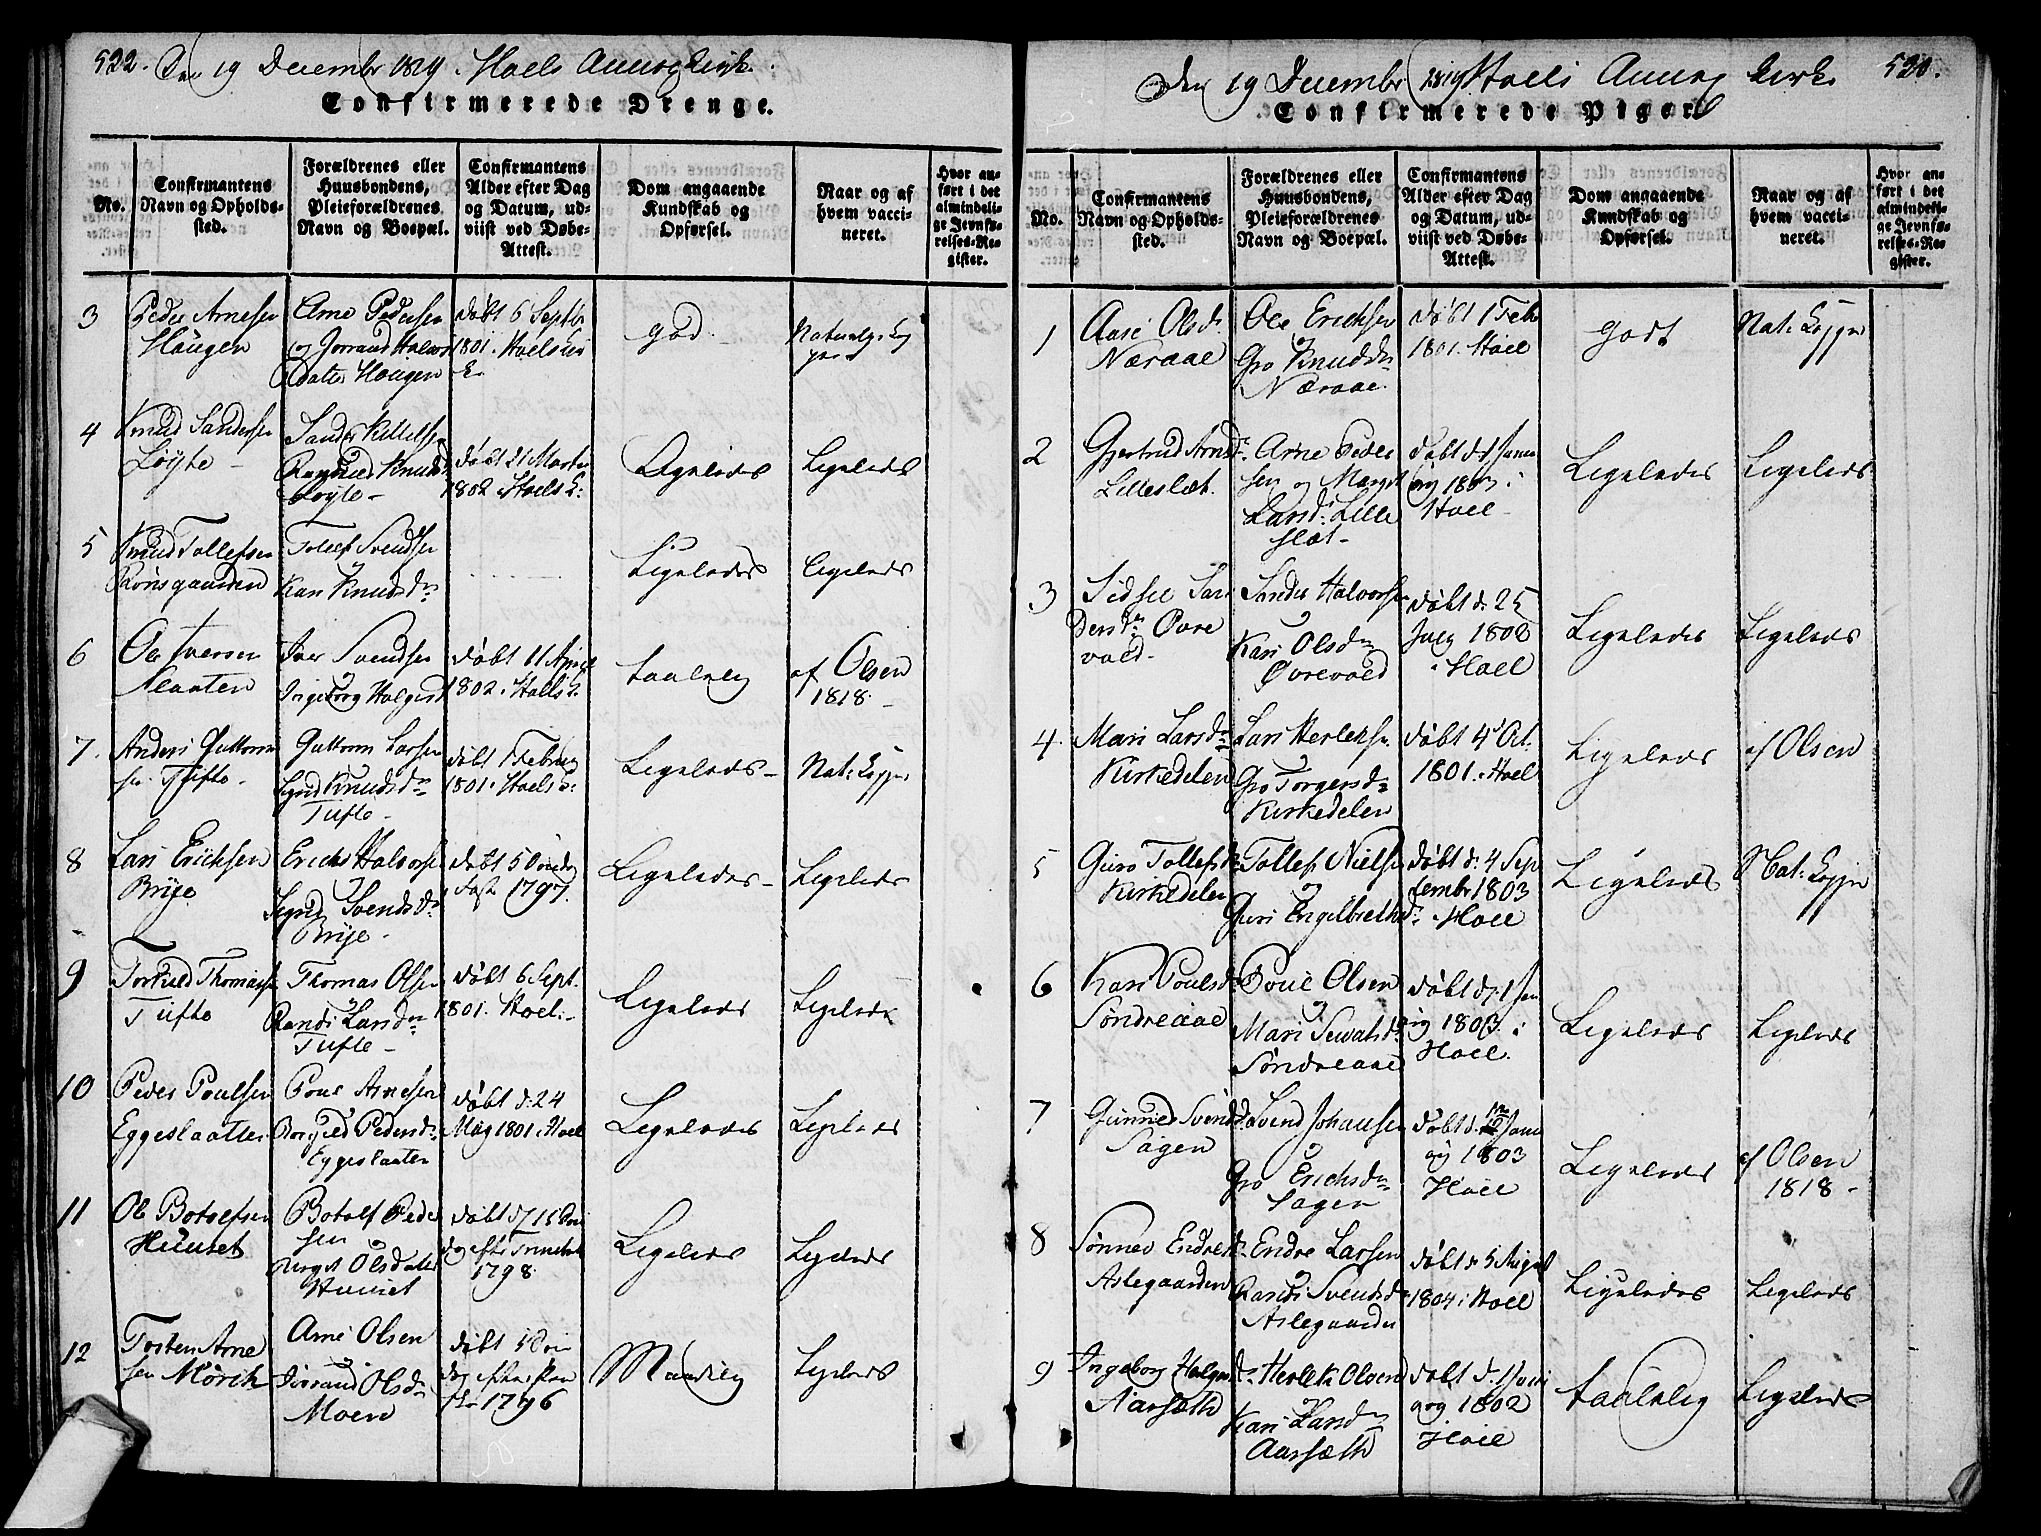 522.
Den 19 December 1819. Hoels Annexkirk.
Confirmerede Drenge.
No.
Confirmantens
Navn og Opholds-
sted.
Forældrenes eller
Huusbondens,
Pleieforældrenes
Navn og Boepæl.
Confirmantens
Alder efter Dag
og Datum, ud-
viist ved Døbe-
Attest.
Dom angaaende
Kundskab og
Opførsel.
Naar og af
hvem vacci-
neret.
Hvor an-
ført i det
almindeli-
ge Jevnfø-
relses-Re-
gister.
3
Peder Arnesen
Haugen
Arne Pedersen
og Jorrand Halvors
datter Haugen
døbt 6 Septbr
1801. Hoels
god
4
Knud Sandersen
Løyte
Sander Killelsen
Ragnild Knuds
Løyte
døbt 21 Marts
1802. Hoels K:
Ligeledes
Ligeleds
5
Knud Tollefsen
Rønsgaarden
Tollef Svendsen
Kari Knudsdr
Ligeledes
Ligeleds
6
Ole Iversen
Slaaten
Iver Svendsen
Ingeborg Helgesd
døbt 11 April
1802. Hoels K.
taalelig
af Olsen
1818
7.
Anders Guttorm
sen Tufte
Guttorm Larsen
Sigrid Knudsdr
Tufte
døbt 1 Februar
1801. Hoels K:
Ligeleds
Nat: Kopper
8
Lars Erichsen
Brye
Erich Halvorsen
Sigrid Svendsdr
Brye
døbt 5 Onsdag
i Fast 1797.
Ligeledes
Ligeleds
9
Torkild Thomassen
Tufte
Thomas Olsen
Randi Larsdr
Tufte
døbt 6 Sept.
1801. Hoel.
Ligeleds
Ligeleds
10
Peder Poulsen
Eggeslaatten
Poul Arnesen
Borgild Pedersdr
Eggeslaaten
døbt d: 24
May 1801. Hoel
Ligeledes
Ligeleds
11
Ole Botolfsen
Huuset
Botolf Peder
sen
Birgit Olsdatter
Huuset
dag efter Trinitatis
1798
Ligeleds
Ligeleds
12
Torsten Arne
sen Mörck
Arne Olsen
Jørrand Olsdr
Moen
døbt 5 Søn
dag efter Paa
ske 1796
Maadelig
Ligeleds
520.
Den 19 December 1819 Hoels Annex Kirke
Confirmerede Piger.
No.
Confirmantens
Navn og Opholds-
sted.
Forældrenes eller
Huusbondens,
Pleieforældrenes
Navn og Boepæl.
Confirmantens
Alder efter Dag
og Datum, ud-
viist ved Døbe-
Attest.
Dom angaaende
Kundskab og
Opførsel.
Naar og af
hvem vacci-
neret.
Hvor an-
ført i det
almindeli-
ge Jevnfø-
relses-Re-
gister.
1
Aase Olsdr
Næraae
Ole Erichsen
Gro Knudsdr
Næraae
døbt 1 Feb
1801. Hoel
godt
Nat: Kopper
2
Gjertrud Arnsdr
Lilleslæt.
Arne Peder
sen og Margit
Larsd: Lille
slæt
døbt d 1 Janu
ary 1803 i
Hoel
Ligeledes
Ligeleds
3
Sidsel San
dersdr Øvre
vold
Sander Halvorsen
Kari Olsdr
Øvrevold
døbt d. 25
July 1802
i Hoel
Ligeledes
Ligeleds
4.
Mari Larsdr
Kirkedelen
Lars Herleksen
Gro Torgersdr
Kirkedelen
døbt 4 Oct.
1801. Hoel
Ligeleds
af Olsen
5
Guro Tollefsdr
Kirkedelen
Tollef Nielsen
Guri Engelbrethsdr
døbt d: 4 Sep
tembr 1803
i Hoel
Ligeleds
Nat: Kopper
6
Kari Poulsd
Söndreaae
Poul Olsen
Mari Sewatsdr
Söndreaae
døbt d: 1 Jan
uary 1803 i
Hoel.
Ligeleds
Ligeleds
7
Gunnild Svendsd
Sagen
Svend Johansen
Gro Erichsdr
Sagen
Janu
ary 1803
Hoel
Ligeleds
af Olsen
1818
8
Sönnev Endresdr
Aslegaarden
Endre Larsen
Randi Svendsdr
Aslegaarden
døbt d 5 August
1804 i Hoel
Ligeledes
Ligeleds
9
Ingeborg Helges
Aarseth
Herlek Olsen
Kari Larsdr
Aarseth
1802
Hoel
taalelig
Ligeleds